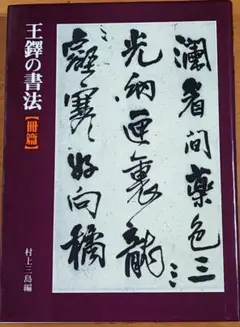 王鐸の書法
【冊篇】
村上三島編
瀾看間藥色三
光納匣裏龍
寒好向橘